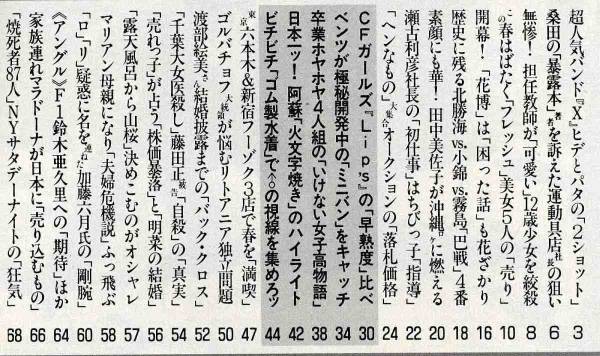 超人気バンド『X』ヒデとパタの「2ショット」 3
桑田の「暴露本」著者を訴えた運動具店社長の狙い 6
無惨！担任教師が「可愛い」12歳少女を絞殺 8
この春はばたく「フレッシュ」美女5人の「売り」 10
開幕！「花博」は「困った話」も花ざかり 16
歴史に残る北勝海vs.小錦vs.霧島「巴戦」4番 18
素顔にも華！田中美佐子が沖縄ロケに燃える 20
瀬古利彦社長の「初仕事」はちびっ子「指導」 22
「ヘンなもの」大集合オークションの「落札価格」 24
CFガールズ『Lip's』の「早熟度」比べ 30
ベンツが極秘開発中の「ミニバン」をキャッチ 34
卒業ホヤホヤ4人組の「いけない女子高物語」 38
日本一ッ！阿蘇「火文字焼き」のハイライト 42
ピチピチ「ゴム製水着」で♂♀の視線を集めろッ 44
東京六本木&新宿フーゾク3店で春を「満喫」 47
ゴルバチョフ大統領が悩むリトアニア独立問題 50
渡部絵美さん結婚披露までの「バック・クロス」 52
「千葉大女医殺し」藤田正被告「自殺」の「真実」 54
「売れっ子」が占う「株価暴落」と「明菜の結婚」 56
「露天風呂から山桜」決めこむのがオシャレ 57
マリアン母親になり「夫婦危機説」ふっ飛ぶ 58
「ロ」「リ」疑惑に名を連ねた加藤六月氏の「剛腕」 60
《アングル》F1鈴木亜久里への「期待」ほか 64
家族連れマラドーナが日本に「売り込むもの」 66
「焼死者87人」NYサタデーナイトの「狂気」 68